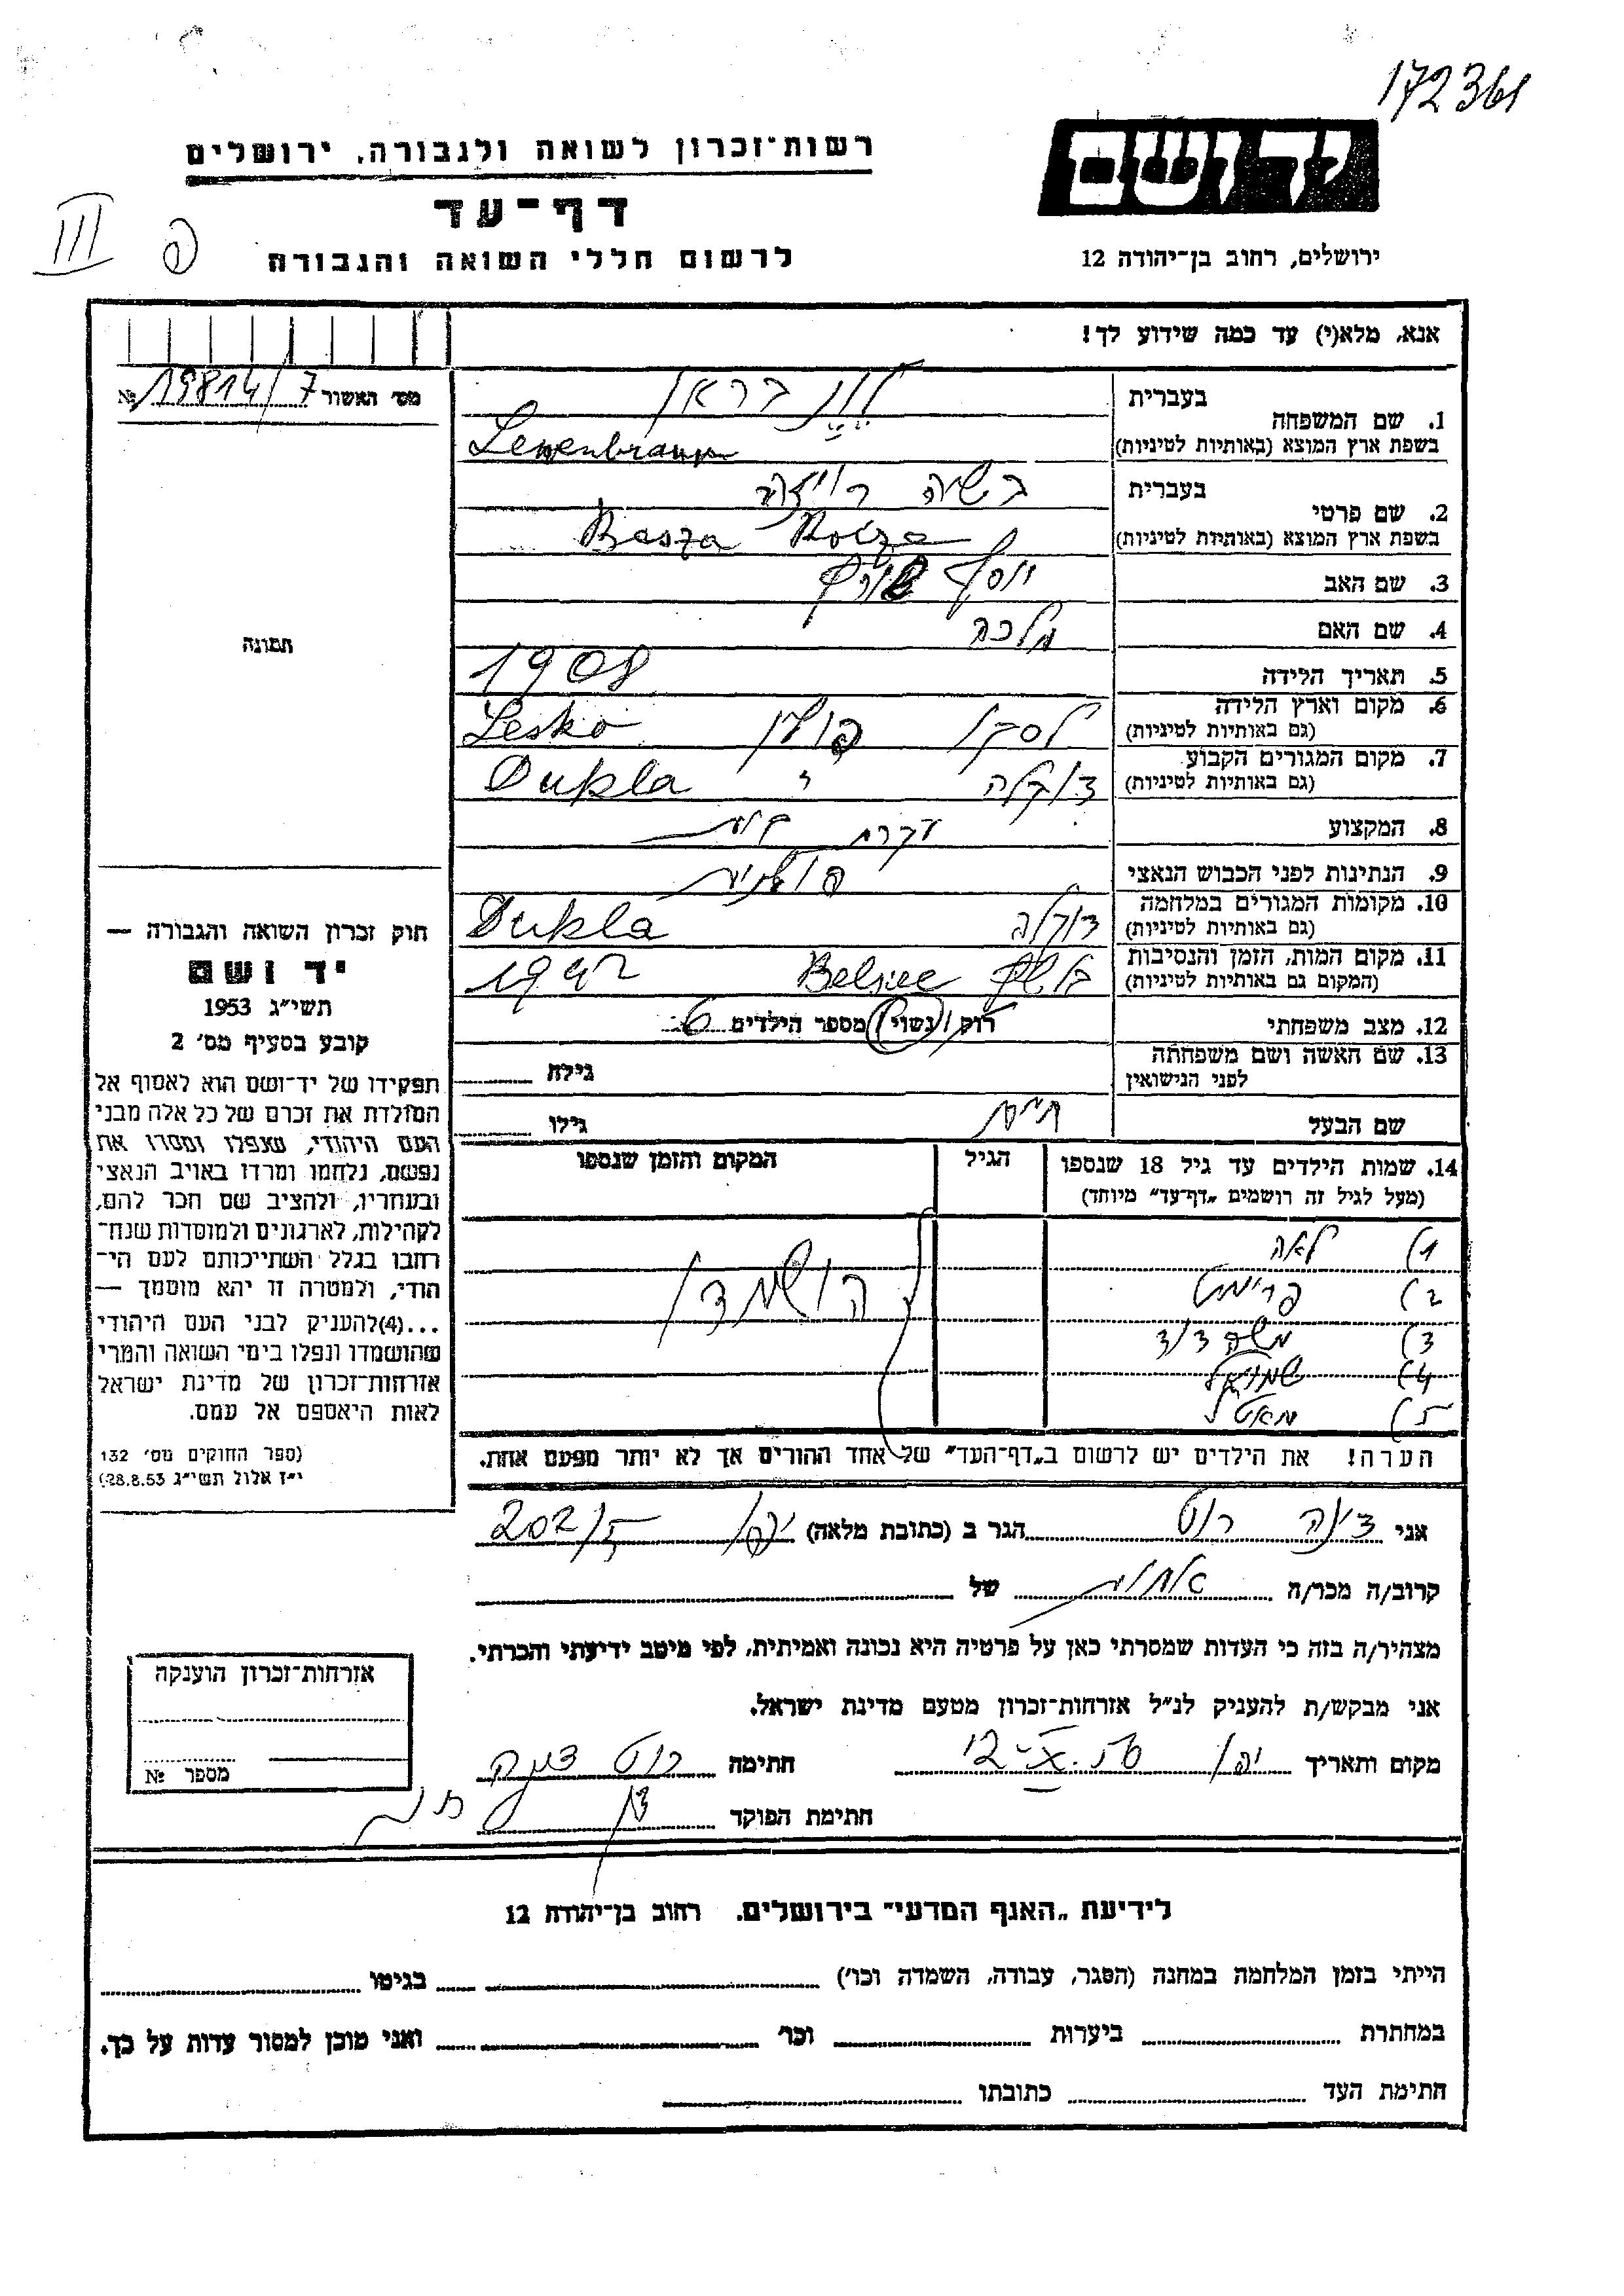 172361
רשות־זכרון לשואה ולגבורה, ירושלים
יד ושם
דף־עד
III
לרשום חללי השואה והגבורה
ירושלים, רחוב בן־יהודה 12
אנא, מלא(י) עד כמה שידוע לך!
מס׳ האשור 19814/7 №
בעברית
1. שם המשפחה
בשפת ארץ המוצא (באותיות לטיניות)
בעברית בשיה רויזה
2. שם פרטי
בשפת ארץ המוצא (באותיות לטיניות) Basza Roiza
3. שם האב יוסף
4. שם האם מלכה
תמונה
5. תאריך הלידה 1908
6. מקום וארץ הלידה לסקו פולין Lesko
(גם באותיות לטיניות)
7. מקום המגורים הקבוע דוקלה " Dukla
(גם באותיות לטיניות)
8. המקצוע עקרת בית
9. הנתינות לפני הכבוש הנאצי פולנית
10. מקומות המגורים במלחמה דוקלה Dukla
(גם באותיות לטיניות)
11. מקום המות, הזמן והנסיבות Belzec 1942
(המקום גם באותיות לטיניות)
12. מצב משפחתי רוק/נשוי/ מספר הילדים 6
13. שם האשה ושם משפחתה גילה
לפני הנישואין
שם הבעל חיים גילו
14. שמות הילדים עד גיל 18 שנספו הגיל המקום והזמן שנספו
(מעל לגיל זה רושמים „דף־עד״ מיוחד)
1) לאה
2) פרימט
3) משה דוד הושמדו
4) שמואל
5)
הערה! את הילדים יש לרשום ב„דף־העד״ של אחד ההורים אך לא יותר מפעם אחת.
חוק זכרון השואה והגבורה —
יד ושם
תשי״ג 1953
קובע בסעיף מס׳ 2
תפקידו של יד־ושם הוא לאסוף אל
המולדת את זכרם של כל אלה מבני
העם היהודי, שנפלו ומסרו את
נפשם, נלחמו ומרדו באויב הנאצי
ובעוזריו, ולהציב שם וזכר להם,
לקהילות, לארגונים ולמוסדות שנח־
רבו בגלל השתייכותם לעם הי־
הודי, ולמטרה זו יהא מוסמך —
...(4)להעניק לבני העם היהודי
שהושמדו ונפלו בימי השואה והמרי
אזרחות־זכרון של מדינת ישראל
לאות היאספם אל עמם.
(ספר החוקים מס׳ 132
י״ז אלול תשי״ג 28.8.53)
אני דינה רוט הגר ב (כתובת מלאה) יפו 202/5
קרוב/ה מכר/ה אחות של
מצהיר/ה בזה כי העדות שמסרתי כאן על פרטיה היא נכונה ואמיתית, לפי מיטב ידיעתי והכרתי.
אני מבקש/ת להעניק לנ״ל אזרחות־זכרון מטעם מדינת ישראל.
מקום ותאריך יפו חתימה רוט דינה
חתימת הפוקד
אזרחות־זכרון הוענקה
מספר №
לידיעת „האגף המדעי״ בירושלים. רחוב בן־יהודה 12
הייתי בזמן המלחמה במחנה (הסגר, עבודה, השמדה וכו׳) בגיטו
במחתרת ביערות וכו׳ ואני מוכן למסור עדות על כך.
חתימת העד כתובתו